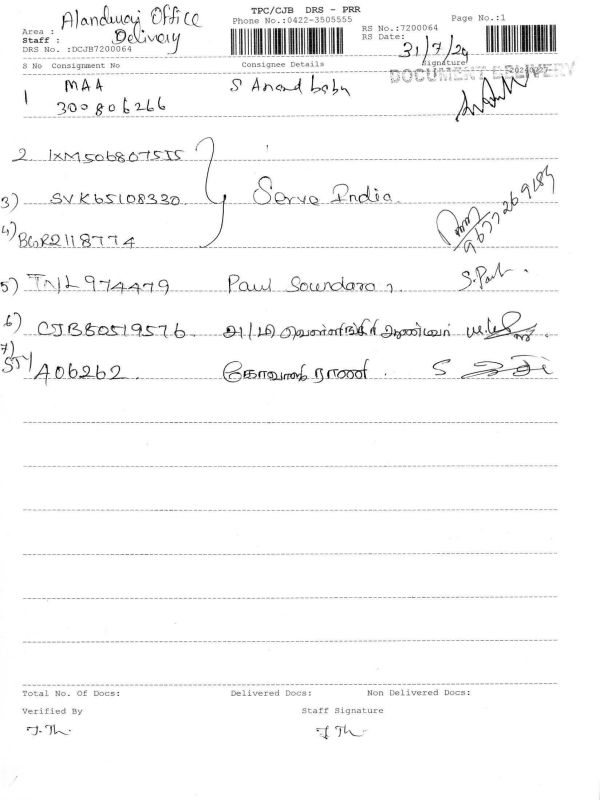 TPC/CJB DRS - PRR
Phone No.:0422-3505555
Page No.:1
Area : Alandurai Office
Staff : Delivery
DRS No. :DCJB7200064
RS No.:7200064
RS Date: 31/7/24
S No Consignment No Consignee Details Signature
DOCUMENT DELIVERY
1 MAA S Anand babu
300806266
2. IXM506807515
3) SVK65108330. Serve India.
4) BGR2118774 9677269189
5) TNL974479 Paul Soundara S. Paul.
6) CJB80519576. அ/மி வெள்ளிங்கிரி ஆண்டவர்
7) STY A06262. S
Total No. Of Docs: Delivered Docs: Non Delivered Docs:
Verified By Staff Signature
J. Th. J Th.